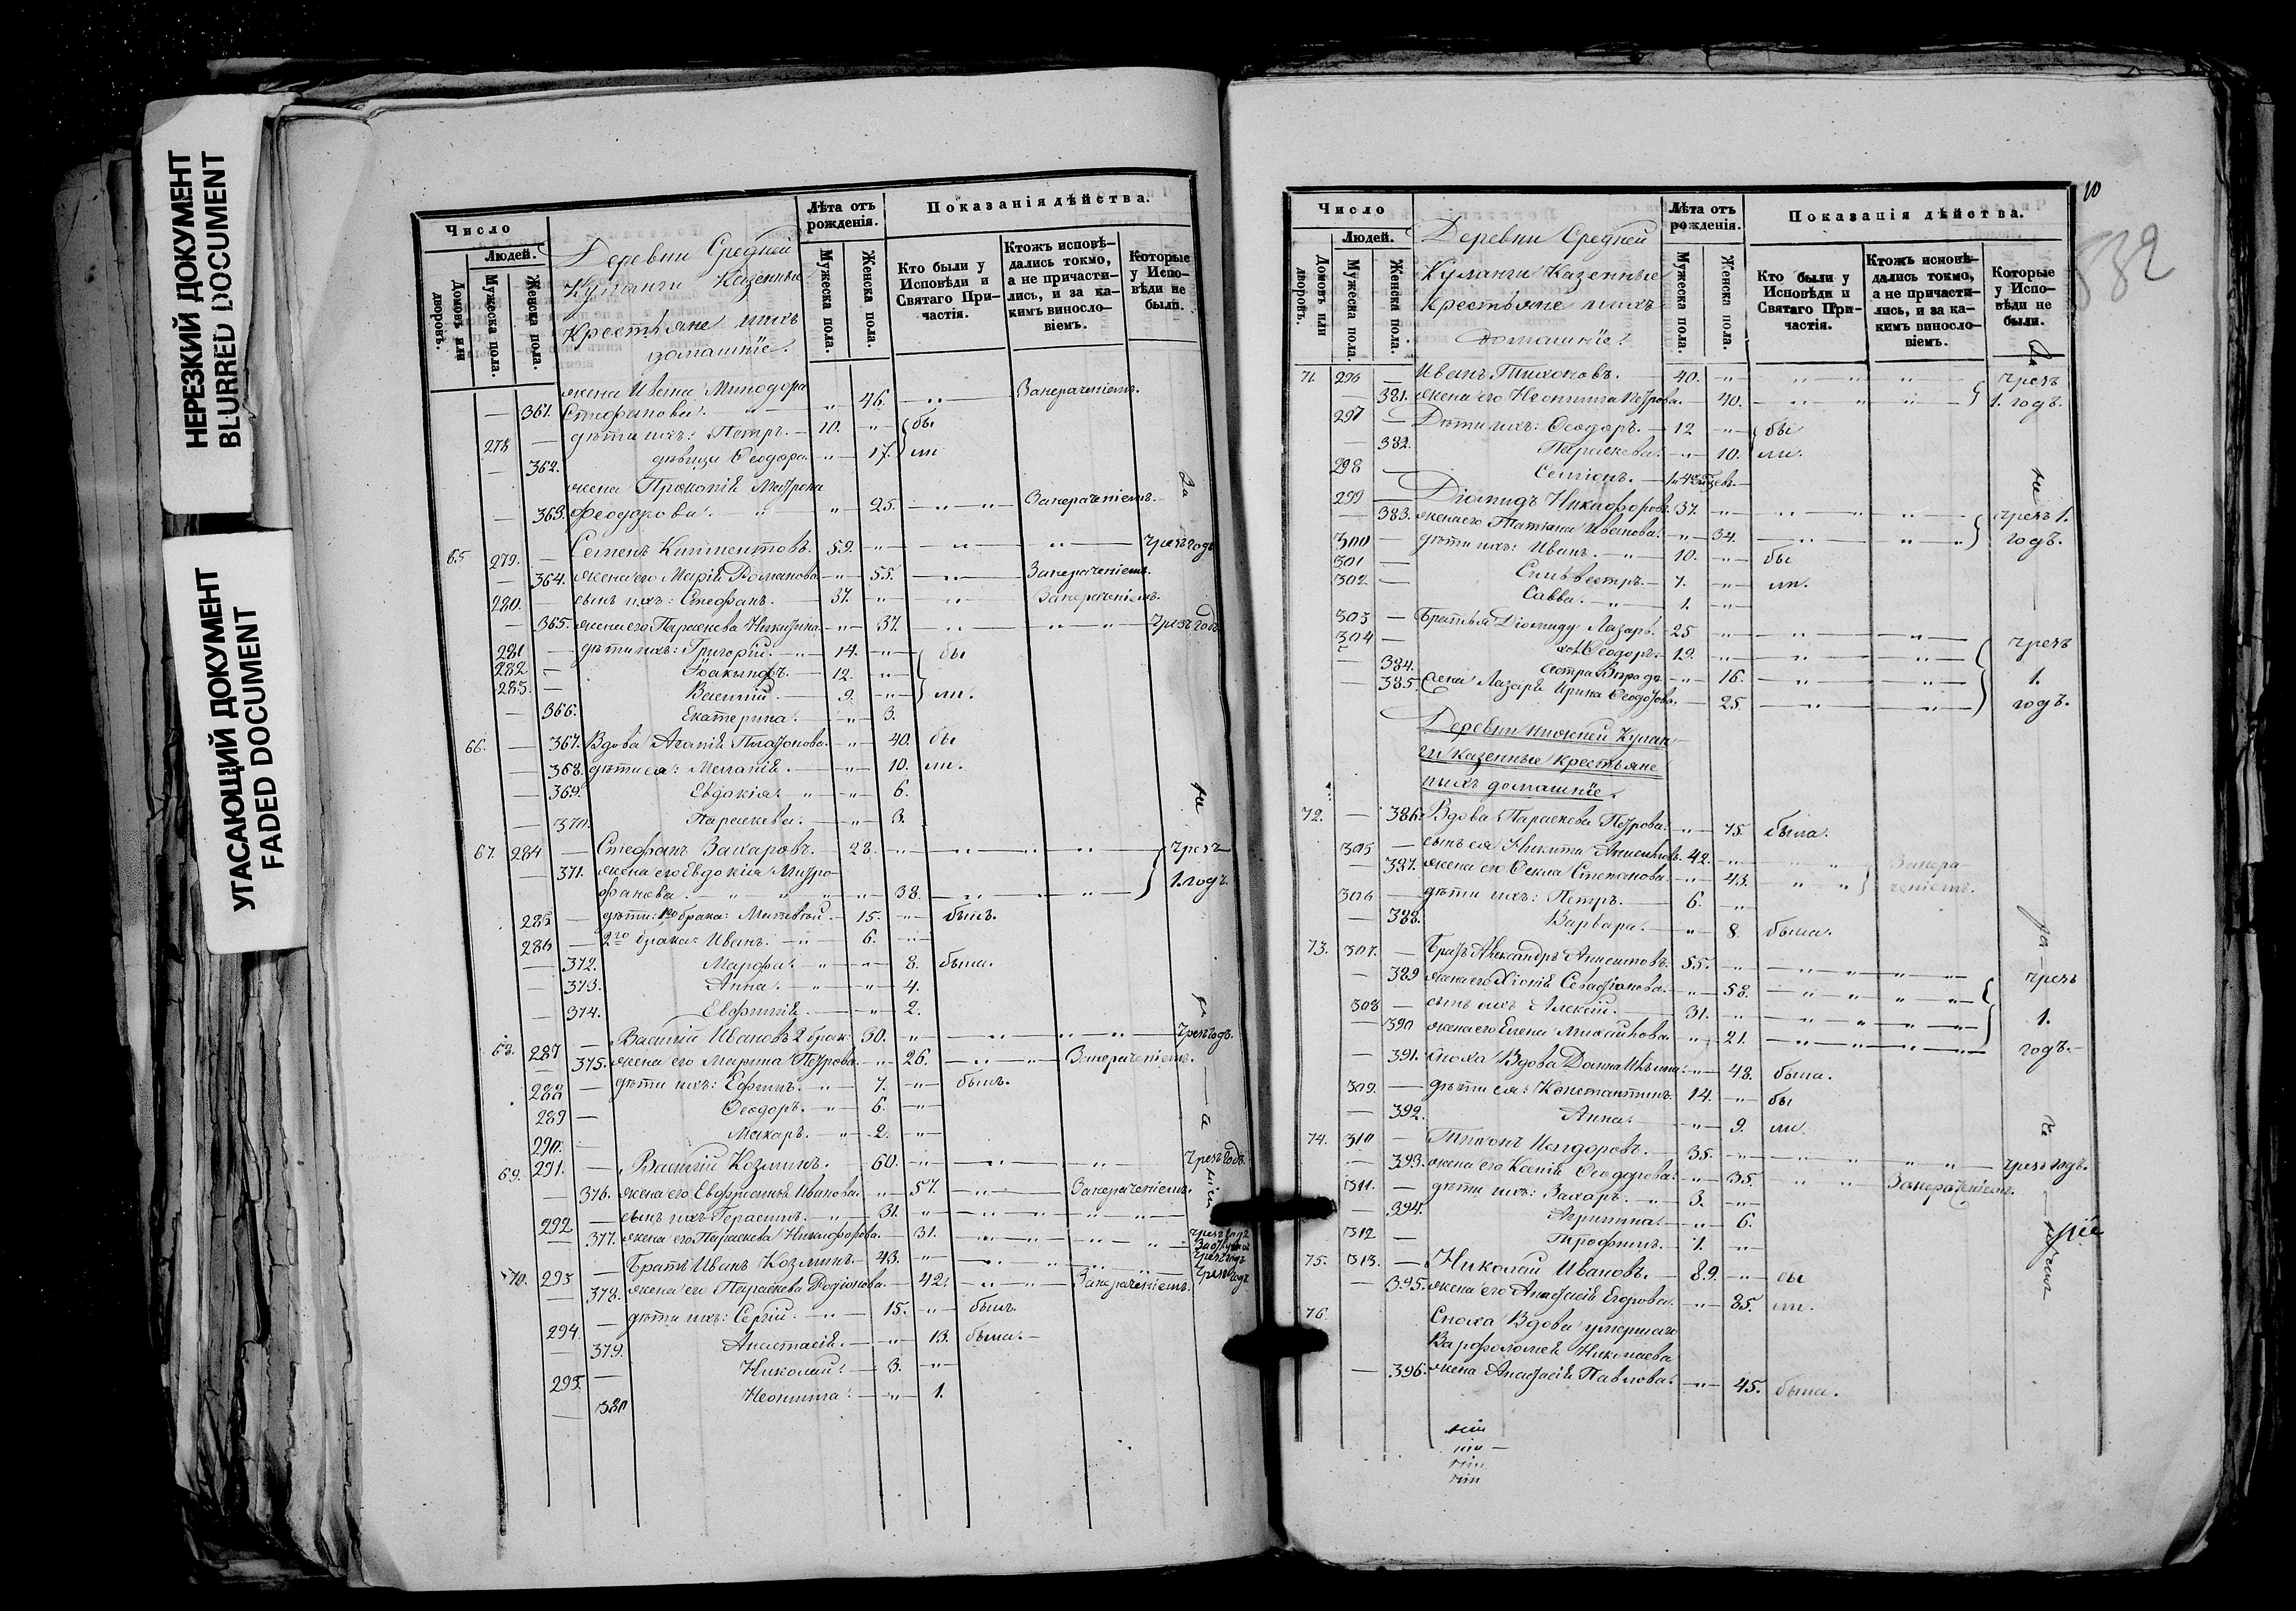 НЕРЕЗКИЙ ДОКУМЕНТ
BLURRED DOCUMENT
УГАСАЮЩИЙ ДОКУМЕНТ
FADED DOCUMENT
Число
Людей.
Домовъ или дворовъ.
Мужеска пола.
Женска пола.
Деревни Средней
Куманги Казенные
Крестьяне и ихъ
домашніе.
Лѣта отъ рожденія.
Мужеска пола.
Женска пола.
Показанія дѣйства.
Кто были у Исповѣди и Святаго Причастія.
Ктожъ исповѣдались токмо, а не причастились, и за какимъ винословіемъ.
Которые у Исповѣди не были.
жена Ивана Минодора
— 361. Стефанова. 46. Занераченіемъ.
278 — дѣти ихъ: Петръ. 10. бы
— 362. дѣвица Ѳеодора. 17. ли
жена Прокопія Матрона
— 363. Феодорова. 25. Занераченіемъ.
65 279. — Семенъ Климентовъ. 59. чрезъ годъ
— 364. жена его Марія Романова 55. Занераченіемъ.
280. — сынъ ихъ: Стефанъ. 37. Занераченіемъ.
— 365. жена его Параскева Никитина. 37. чрезъ годъ
281 — дѣти ихъ: Григорій. 14. бы
282. — Іоакимъ. 12.
283. — Василій 9. ли.
— 366. Екатерина. 3.
66. — 367. Вдова Агапія Платонова. 40. бы
— 368. дѣти ея: Меланія. 10. ли.
— 369. Евдокія. 6.
— 370. Параскева. 3.
67. 284 — Стефанъ Захаровъ. 28. чрезъ
— 371. жена его Евдокія Митро-
фанова. 38. 1. годъ.
285 — дѣти: 1го брака: Матвѣй. 15. былъ.
286 — 2го брака: Иванъ. 6.
— 372. Марфа. 8. была.
— 373. Анна. 4.
— 374. Евфимія. 2.
68. 287 — Василій Ивановъ 2 брак. 30. чрезъ годъ.
— 375. жена его Марина Петрова. 26. Занераченіемъ.
288 — дѣти ихъ: Ефимъ. 7. былъ.
289 — Ѳеодоръ. 6.
290. — Макаръ. 2.
69. 291. — Василій Козминъ. 60. чрезъ годъ.
— 376. жена его Евфросинья Иванова. 57. Занераченіемъ.
292 — сынъ ихъ Герасимъ. 31.
— 377. жена его Параскева Никифорова. 31. чрезъ годъ
70. 293 — Братъ Иванъ Козминъ. 43. чрезъ годъ
— 378. жена его Параскева Родіонова. 42. Занераченіемъ.
294. — дѣти ихъ: Сергій. 15. былъ.
— 379. Анастасія. 13. была.
295. — Николай. 3.
— 380 Неонила. 1.
10
532
Число
Людей.
Домовъ или дворовъ.
Мужеска пола.
Женска пола.
Деревни Средней
Куманги Казенные
Крестьяне и ихъ
домашніе.
Лѣта отъ рожденія.
Мужеска пола.
Женска пола.
Показанія дѣйства.
Кто были у Исповѣди и Святаго Причастія.
Ктожъ исповѣдались токмо, а не причастились, и за какимъ винословіемъ.
Которые у Исповѣди не были.
71. 296 — Иванъ Тихоновъ. 40. чрезъ
— 381. жена его Неонила Петрова. 40. 1. годъ.
297 — Дѣти ихъ: Ѳеодоръ. 12 бы
— 382. Параскева. 10. ли.
298 — Семіонъ.
299 — Діомидъ Никифоровъ. 37. чрезъ 1.
— 383. жена его Татіана Иванова. 34. годъ.
300 — дѣти ихъ: Иванъ. 10. бы
301 — Сильвестръ. 7. ли.
302 — Савва. 1.
303 — Братья Діомиду: Лазарь. 25
304 — Ѳеодоръ. 19. чрезъ
— 384. сестра 16. 1.
— 385. Жена Лазаря Ирина Ѳеодотова. 25. годъ.
Деревни Нижней Куман-
ги казенные Крестьяне
и ихъ домашніе.
72. — 386. Вдова Параскева Петрова. 75. была.
305 — сынъ ея Никита Анисимовъ. 42. Занера-
— 387. жена его Ѳекла Степанова. 43. ченіемъ.
306 — дѣти ихъ: Петръ. 6.
— 388. Варвара. 8. была.
73. 307. — Братъ Александръ Анисимовъ. 55. чрезъ
— 389 жена его Хіонія 58.
308 — сынъ ихъ Алексій. 31. 1.
— 390 жена его Елена Михайлова. 21. годъ.
— 391. Сноха Вдова 48. была.
309. — дѣти ея: Константинъ 14. бы
— 392. Анна. 9. ли.
74. 310 — Тихонъ Исидоровъ. 35. чрезъ годъ.
— 393. жена его Ксенія Ѳеодорова. 35. Занераченіемъ.
311. — дѣти ихъ: Захаръ. 3.
— 394. Агрипина. 6.
312 — Трофимъ. 1.
75. 313. — Николай Ивановъ. 89. бы
— 395. жена его Анастасія Егорова. 85. ли.
76. Сноха Вдова умершаго
Варфоломея Николаева
— 396. жена Анастасія Павлова. 45. была.